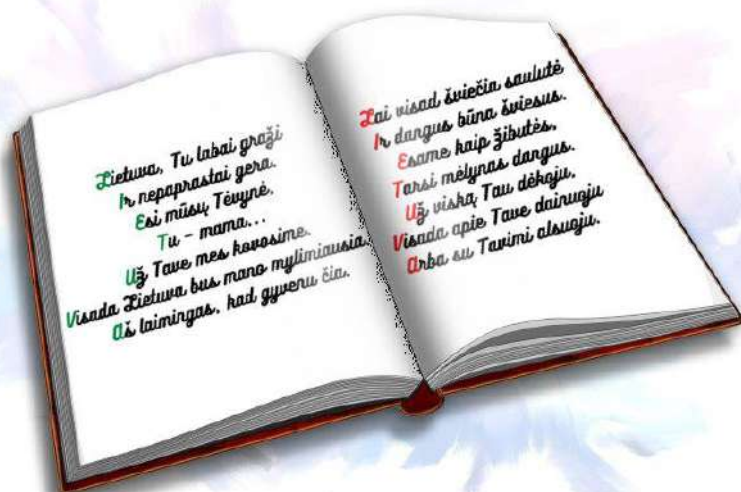 Lietuva, Tu labai graži
Ir nepaprastai gera.
Esi mūsų Tėvynė,
Tu – mama...
Už Tave mes kovosime.
Visada Lietuva bus mano mylimiausia.
Aš laimingas, kad gyvenu čia.
Lai visad šviečia saulutė
Ir dangus būna šviesus.
Esame kaip žibutės,
Tarsi mėlynas dangus.
Už viską Tau dėkoju,
Visada apie Tave dainuoju
Arba su Tavimi alsuoju.